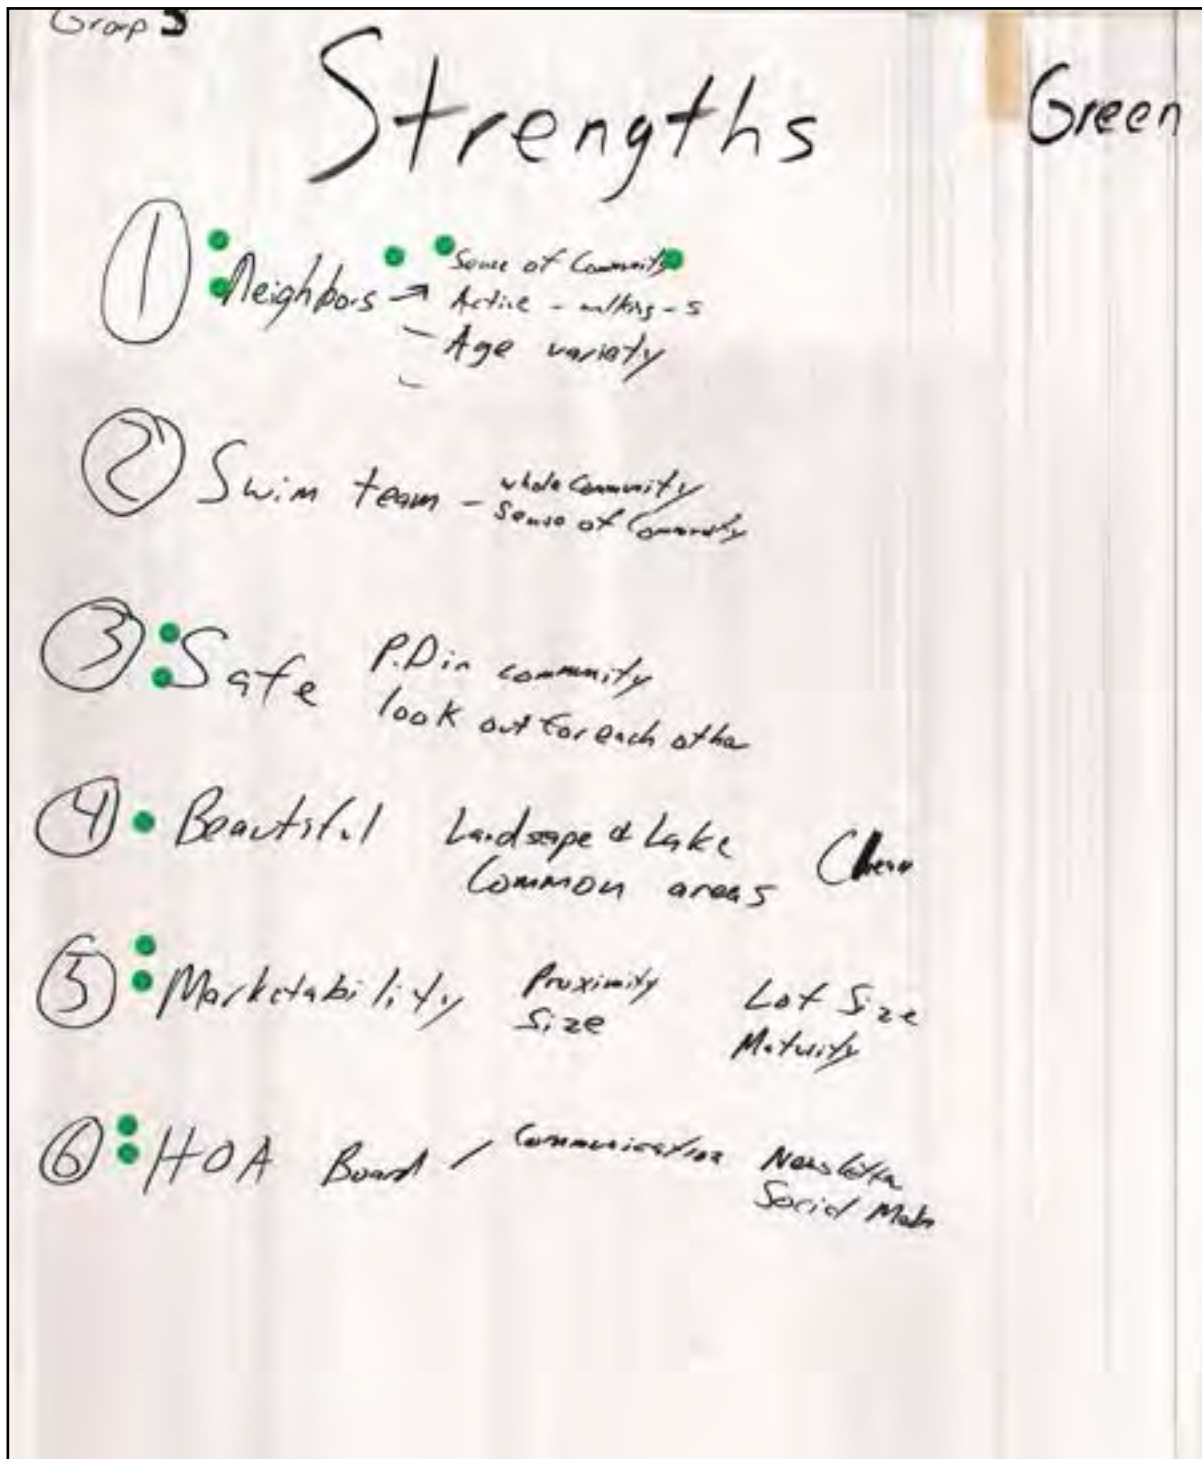 Group 3
Strengths
Green
1 Neighbors → Sense of Community
Active - walking - s
- Age variaty
2 Swim team - whole Community
Sense of Community
3 Safe P.D in community
look out for each other
4 Beautiful Landscape & Lake Clean
Common areas
5 Marketability Proximity Lot Size
Size Maturity
6 HOA Board / Communication Newsletter
Social Media